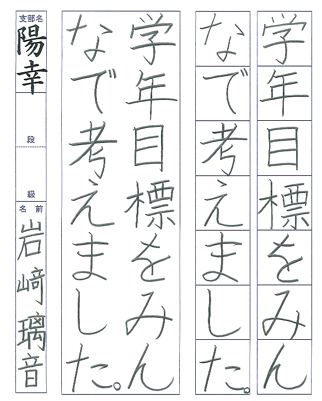 学年目標をみん
なで考えました。
学年目標をみん
なで考えました。
支部名
陽幸
段
級
名前
岩﨑璃音